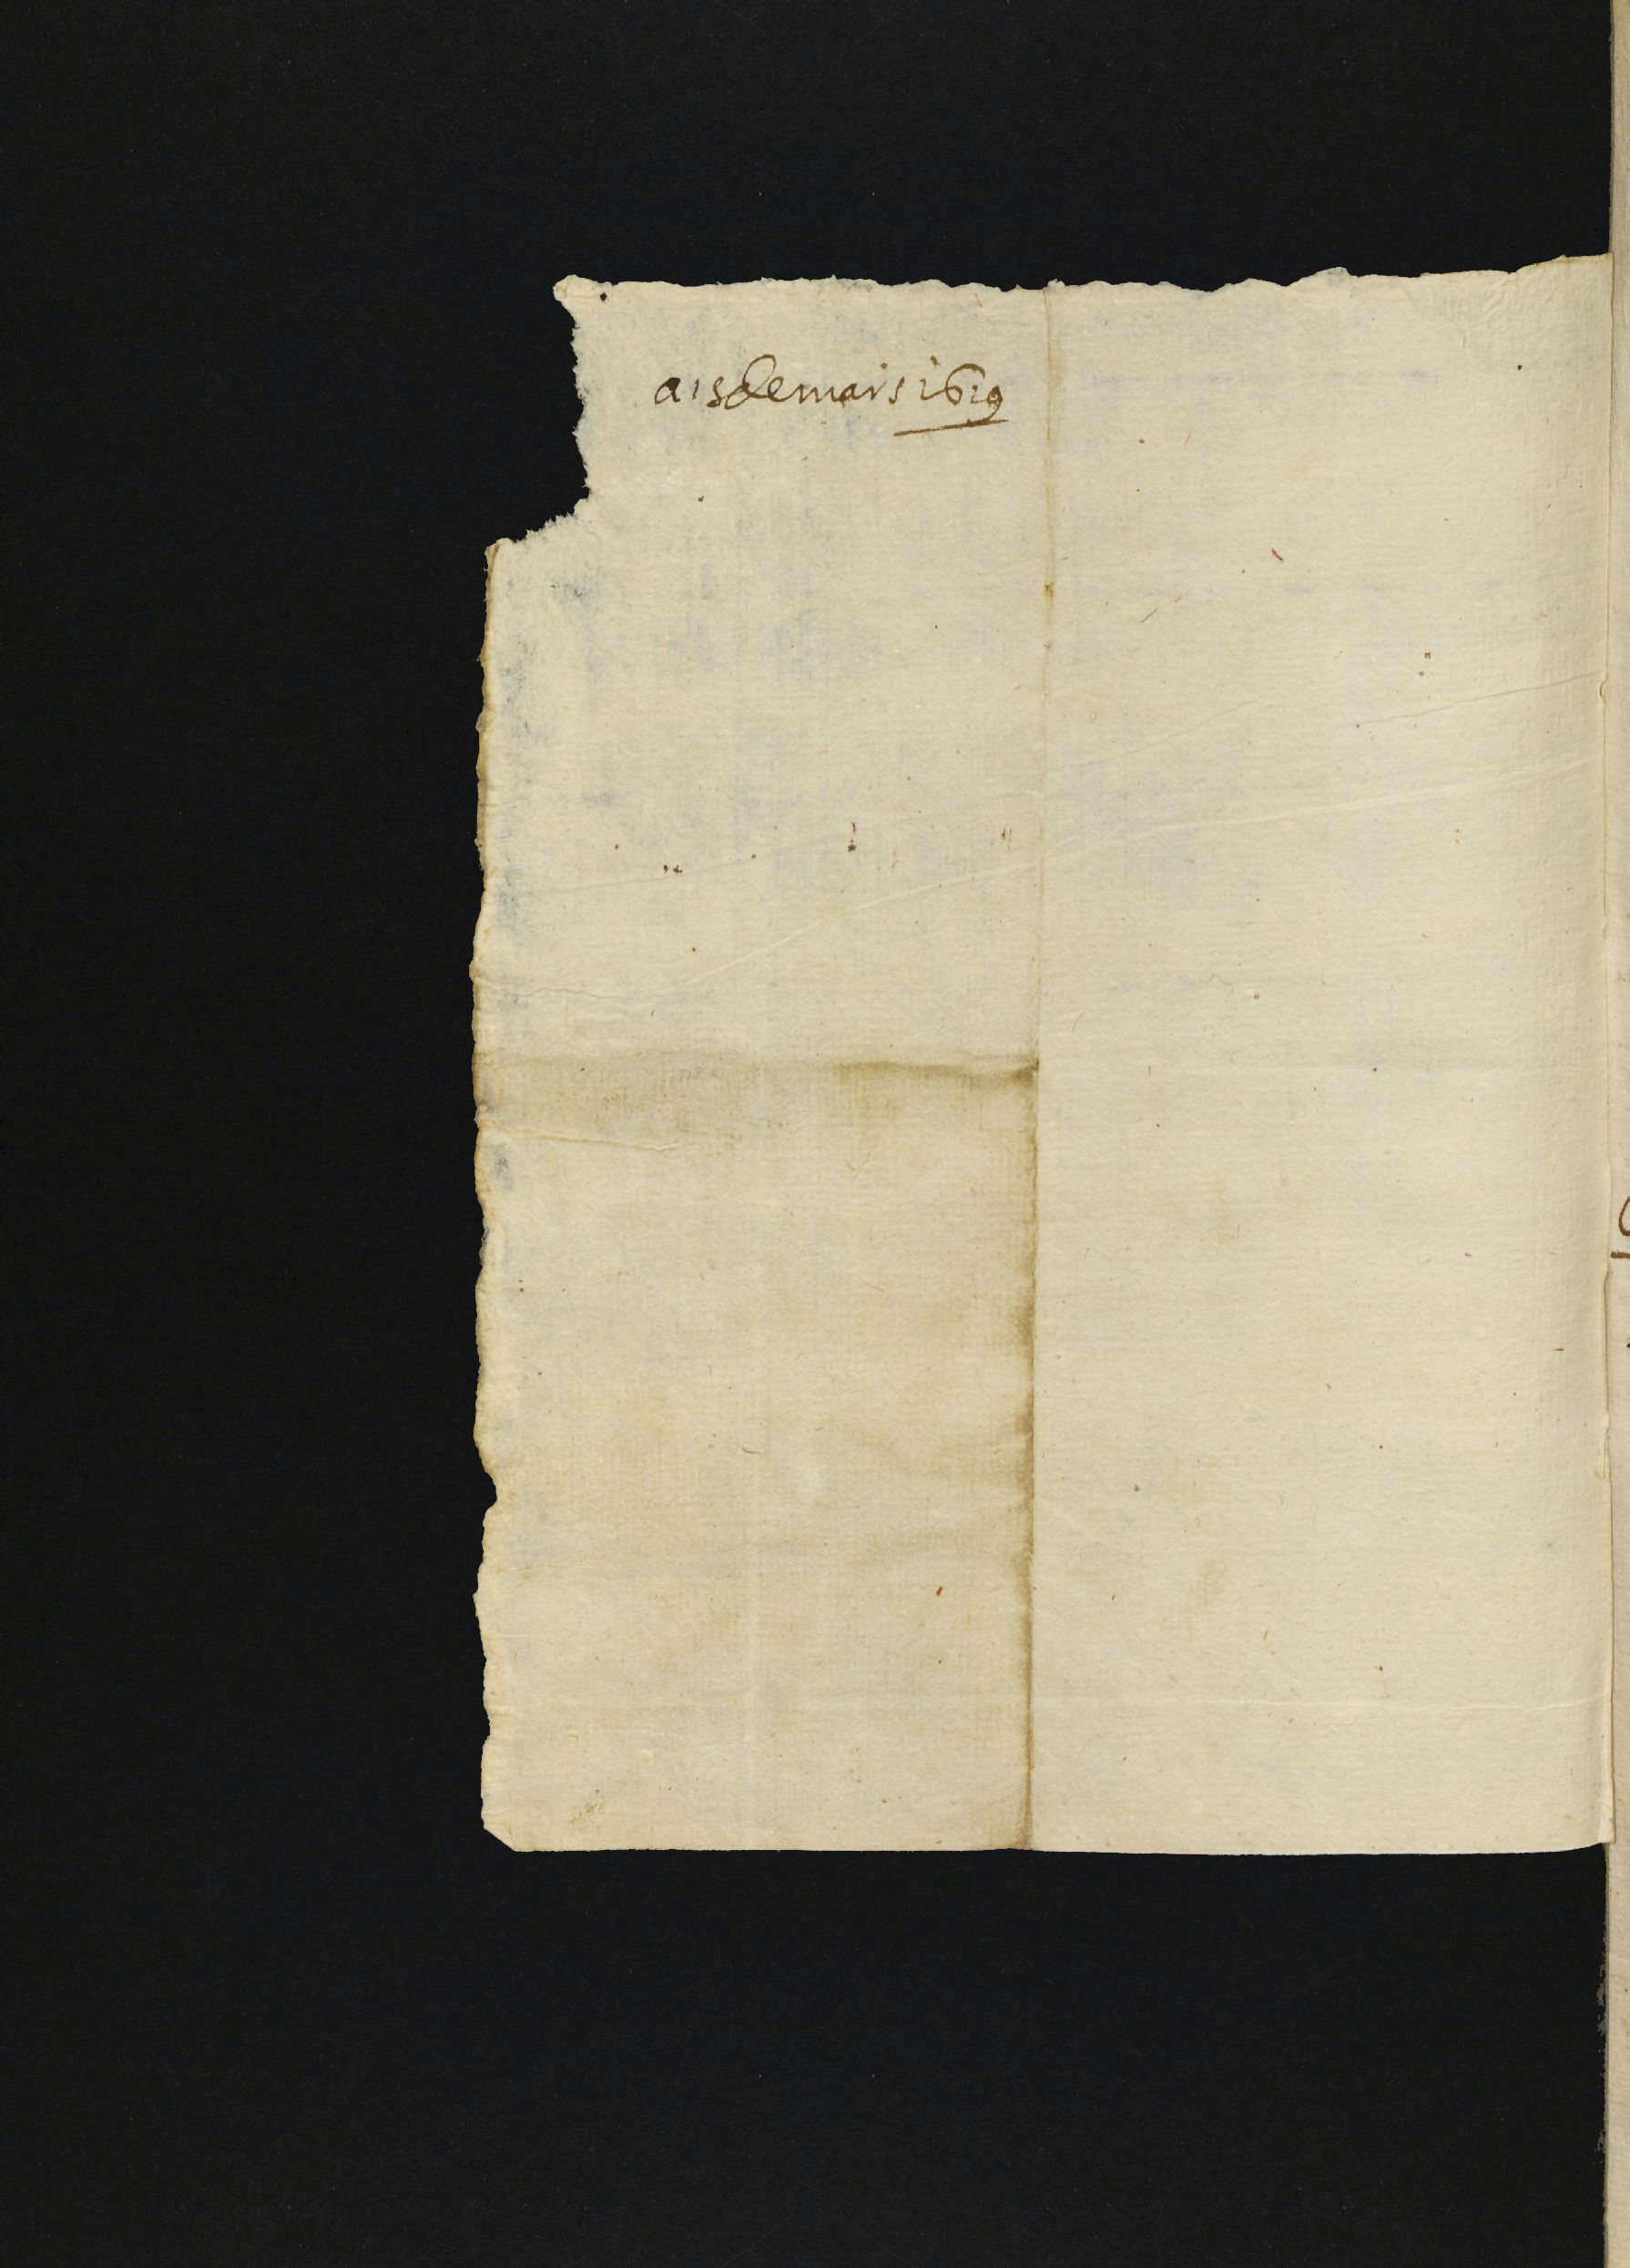 a 15 de mars 1619